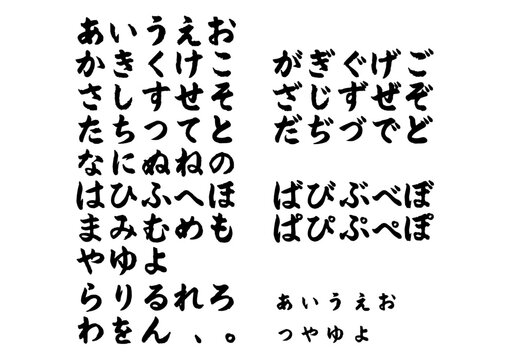 あいうえお
かきくけこ
さしすせそ
たちつてと
なにぬねの
はひふへほ
まみむめも
やゆよ
らりるれろ
わをん、。
がぎぐげご
ざじずぜぞ
だぢづでど
ばびぶべぼ
ぱぴぷぺぽ
ぁぃぅぇぉ
っゃゅょ